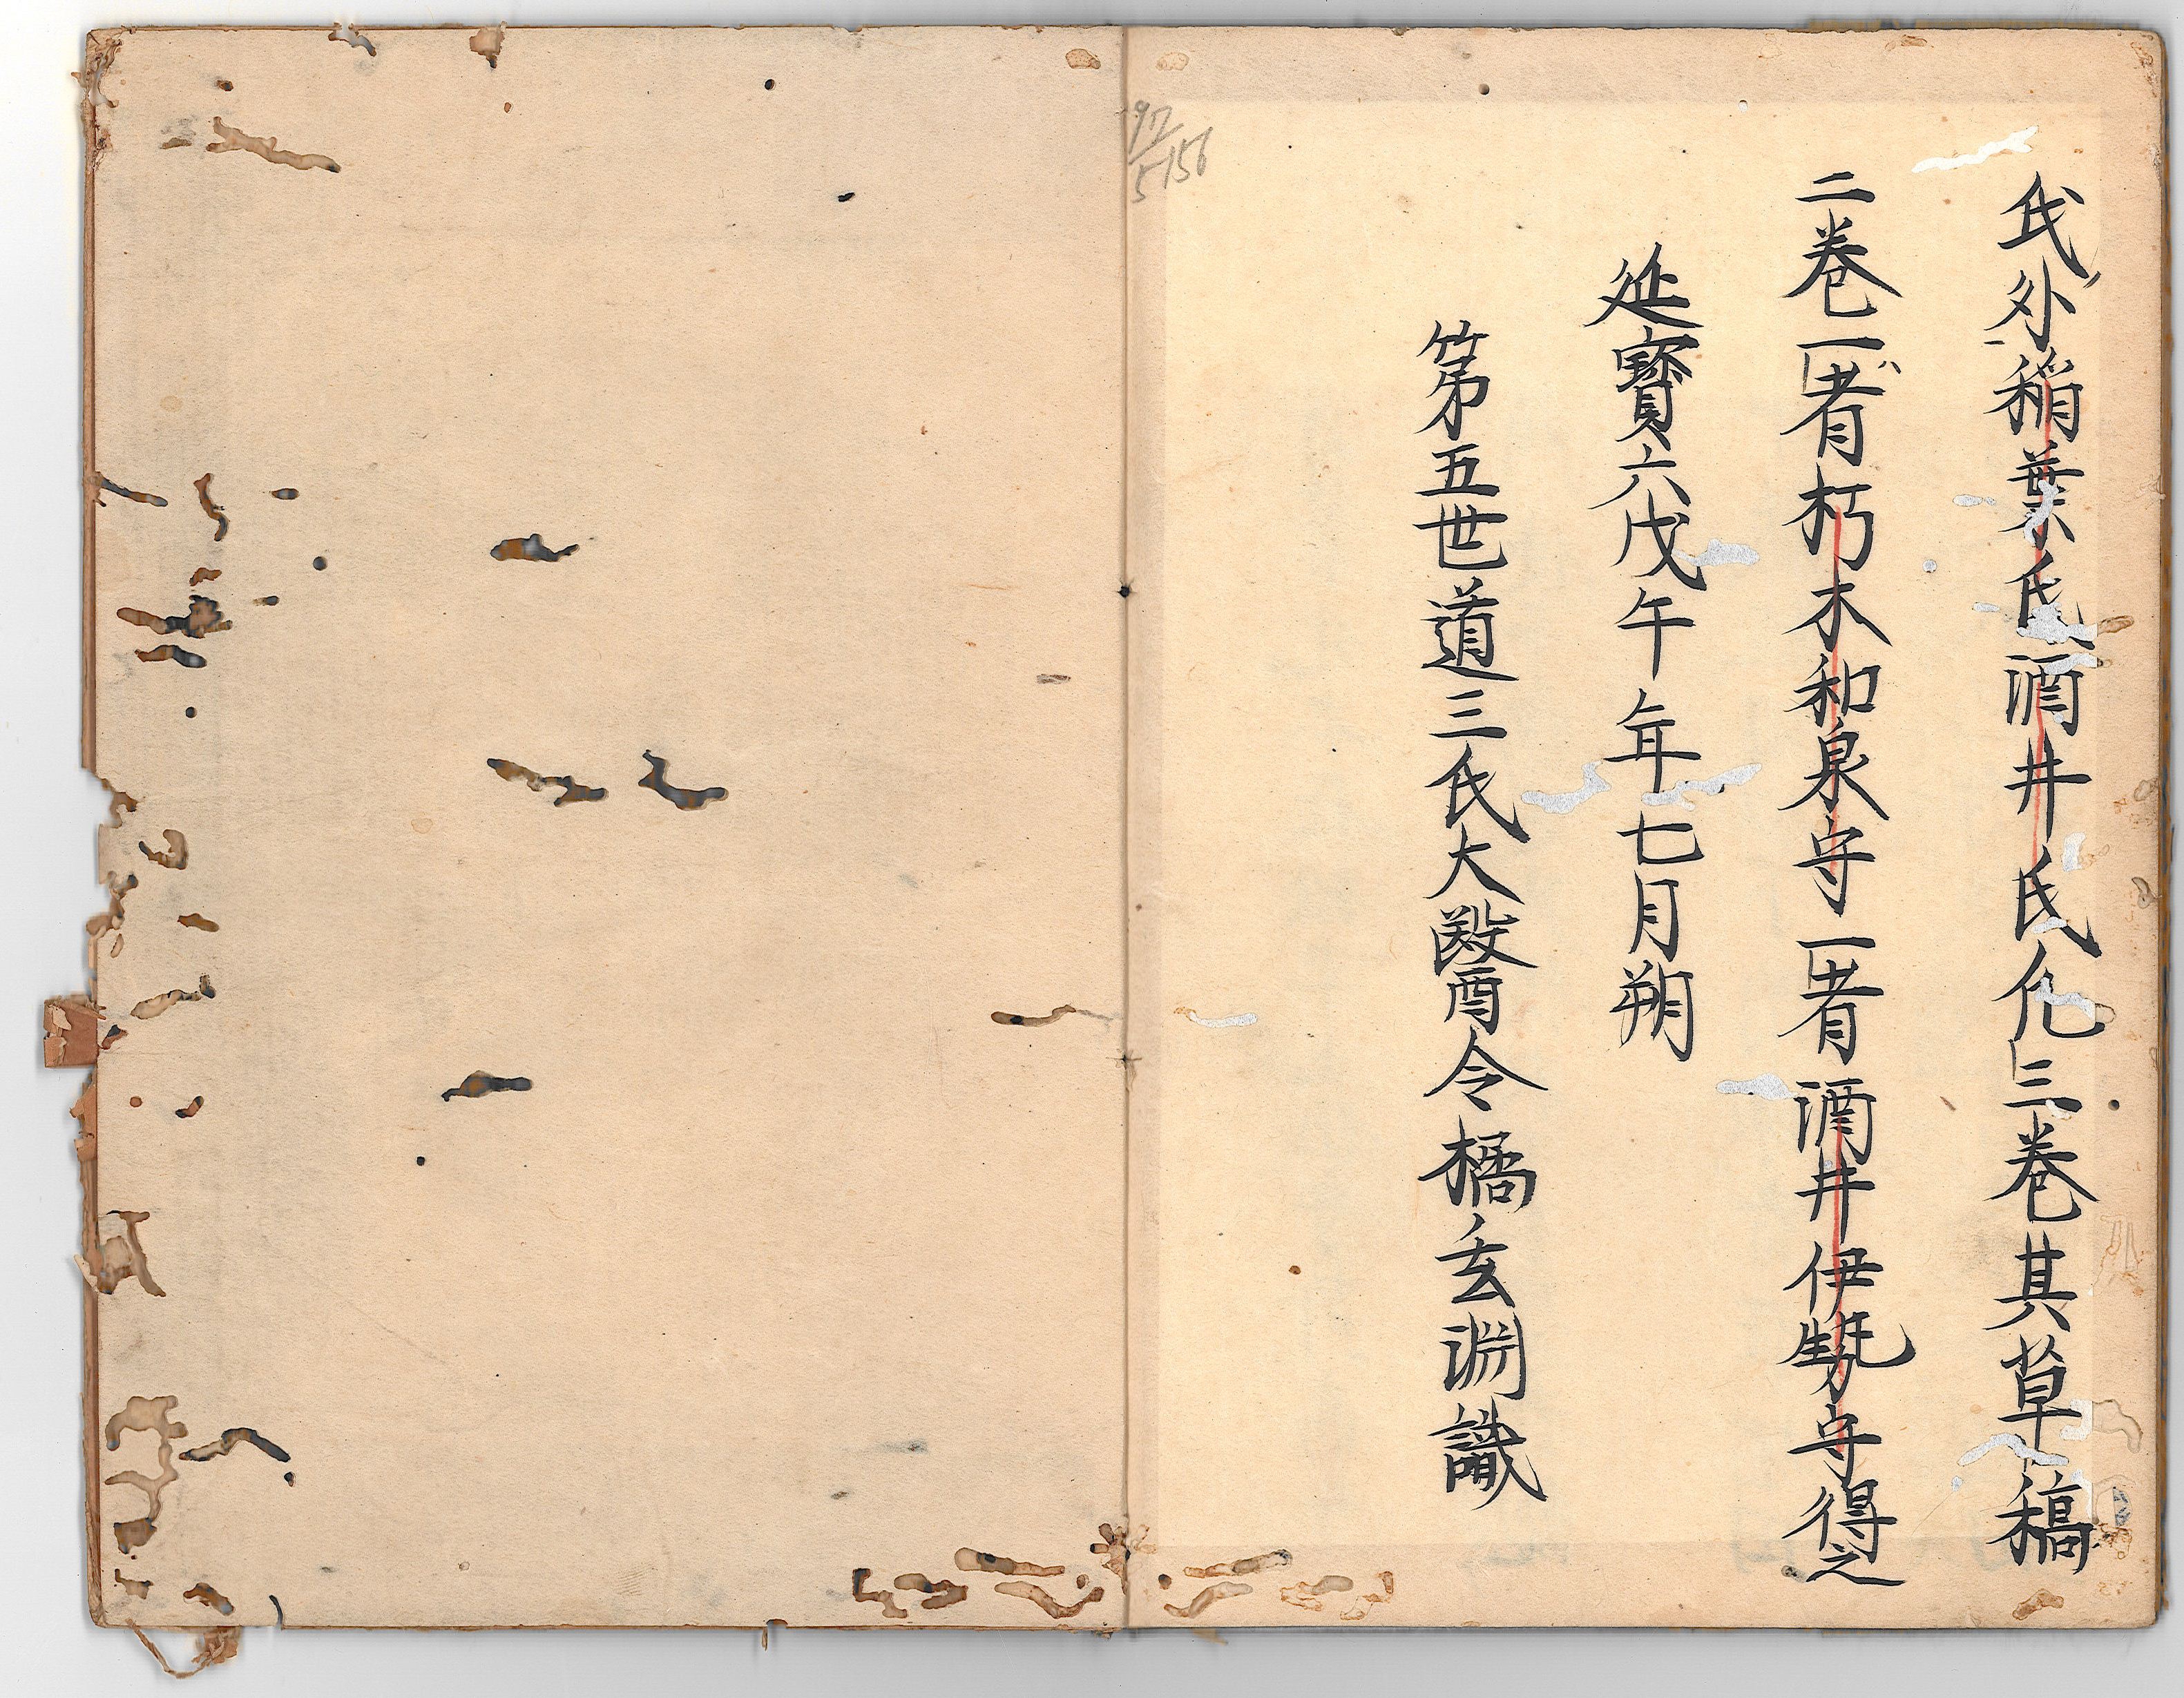 氏外稲葉氏酒井氏凢三巻其草稿
二巻一者朽木和泉守一者酒井伊勢守得之
延寳六戊午年七月朔
第五世道三氏大醫令橘玄淵識
97
5156